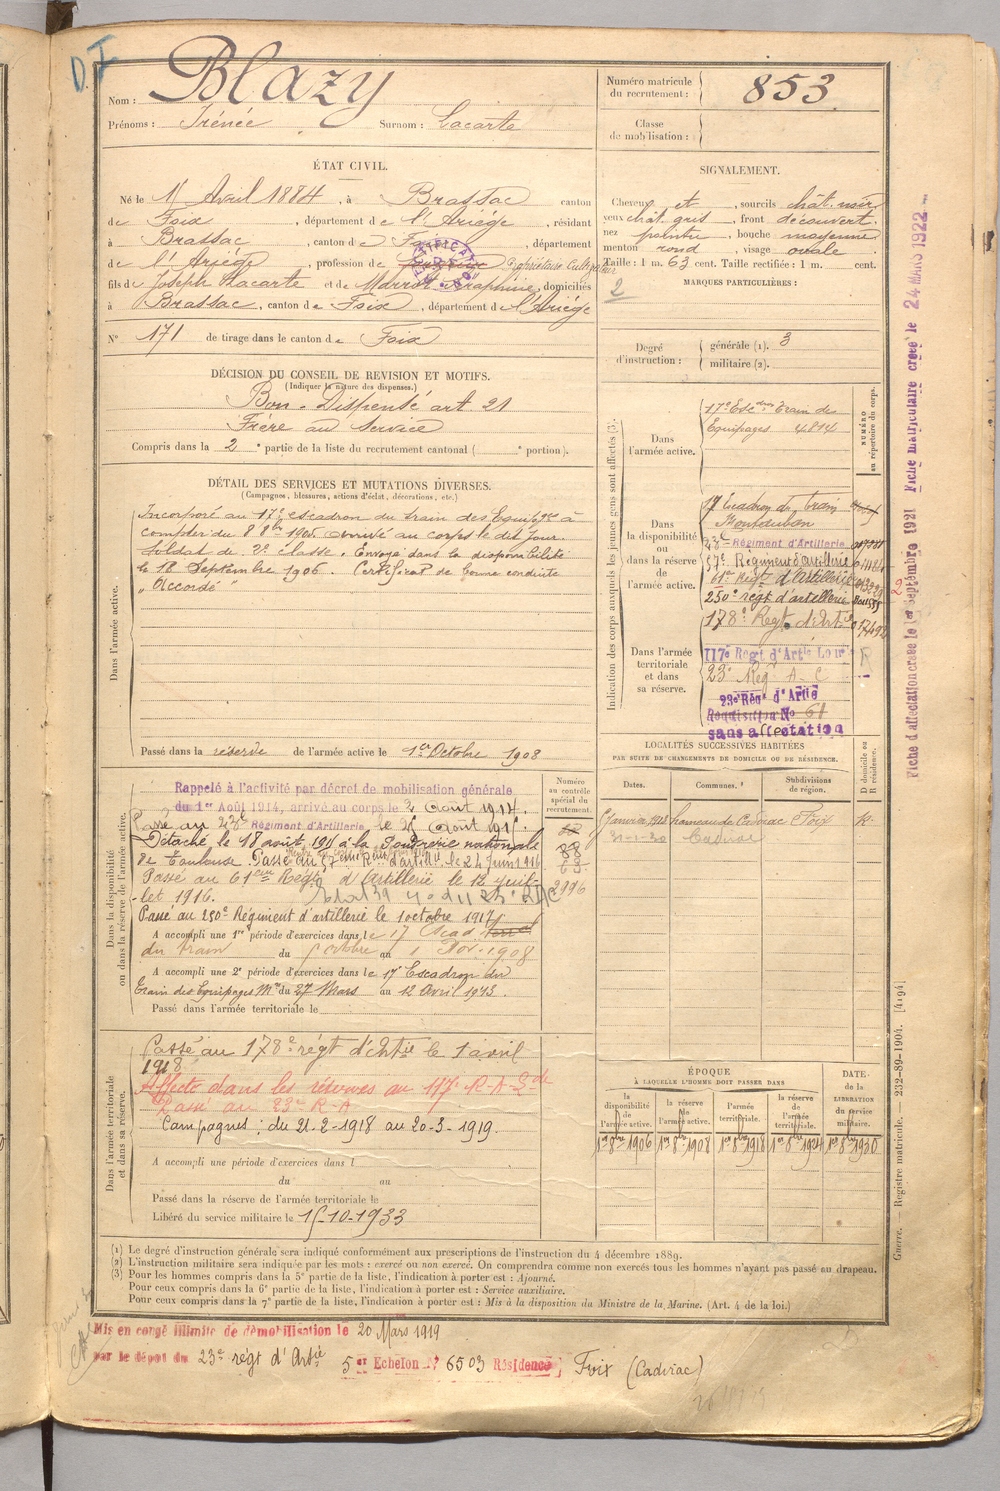 D. I
Nom : Blazy
Prénoms : Irénée Surnom : Lacarte
Numéro matricule du recrutement : 853
Classe de mobilisation :
ÉTAT CIVIL.
Né le 11 Avril 1884, à Brassac canton
de Foix, département de l'Ariège, résidant
à Brassac, canton de Foix, département
de l'Ariège, profession de Propriétaire Cultivateur
fils de Joseph Lacarte et de Marrot Séraphine, domiciliés
à Brassac, canton de Foix, département de l'Ariège
N° 171 de tirage dans le canton de Foix
SIGNALEMENT.
Cheveux et, sourcils chât. noir
yeux chât. gris, front découvert.
nez pointu, bouche moyenne
menton rond, visage ovale
Taille : 1 m. 63 cent. Taille rectifiée : 1 m. cent.
2
MARQUES PARTICULIÈRES :
Degré d'instruction : générale (1). 3
militaire (2).
DÉCISION DU CONSEIL DE REVISION ET MOTIFS.
(Indiquer la nature des dispenses.)
Bon - Dispensé art. 21
Frère au Service
Compris dans la 2e partie de la liste du recrutement cantonal ( e portion).
DÉTAIL DES SERVICES ET MUTATIONS DIVERSES.
(Campagnes, blessures, actions d'éclat, décorations, etc.)
Dans l'armée active.
Incorporé au 17e escadron du train des Equipages à
compter du 8 8bre 1905. arrivé au corps le dit jour.
Soldat de 2e classe. Envoyé dans la disponibilité
le 18 Septembre 1906. Certificat de bonne conduite
"Accordé"
Passé dans la réserve de l'armée active le 1er Octobre 1908
Indication des corps auxquels les jeunes gens sont affectés (3).
NUMÉRO au répertoire du corps.
Dans l'armée active.
17e Escdron Train des
Equipages 4814
Dans la disponibilité ou dans la réserve de l'armée active.
17 Escadron du train
Montauban
23e Régiment d'Artillerie
57e Régiment d'artillerie
61e Régt d'Artillerie
250e régt d'artillerie
178e Regt d'Artie
Dans l'armée territoriale et dans sa réserve.
117e Régt d'Artie Lourde
23e Reg A. C
23e Rég' d'Artie
Requisition No 61
sans affectation
Fiche d'affectation créée le 1er Septembre 1921 Fiche matriculaire créée le 24 MARS 1922
LOCALITÉS SUCCESSIVES HABITÉES
PAR SUITE DE CHANGEMENTS DE DOMICILE OU DE RÉSIDENCE.
Dates. Communes. Subdivisions de région. D domicile ou R résidence.
Janvier 1918 hameau de Cadirac Foix R.
31-1-30 Cadirac
Dans la disponibilité ou dans la réserve de l'armée active.
Numéro au contrôle spécial du recrutement.
Rappelé à l'activité par décret de mobilisation générale
du 1er Août 1914, arrivé au corps le 3 août 1914.
Passé au 23e Régiment d'Artillerie le août 191
Détaché le 18 août 191 à la Poudrerie nationale
de Toulouse. Passé au 57e Regt d'artillie le 24 Juin 1916
Passé au 61eme Regt d'Artillerie le 12 juil-
-let 1916.
2996
Passé au 250e Régiment d'artillerie le 1 octobre 1917
A accompli une 1re période d'exercices dans le 17 Escad
du train du octobre au 1 Nov. 1908
A accompli une 2e période d'exercices dans le 17e Escadron du
train des Equipages Mre du 27 Mars au 12 Avril 1913.
Passé dans l'armée territoriale le
Dans l'armée territoriale et dans sa réserve.
Passé au 178e régt d'Artie le 1 avril
1918
Affecté dans les réserves au 117e R-A-Lde
Passé au 23e R-A
Campagnes : du 21-2-1918 au 20-3-1919.
A accompli une période d'exercices dans l
du au
Passé dans la réserve de l'armée territoriale le
Libéré du service militaire le 15-10-1933
ÉPOQUE
À LAQUELLE L'HOMME DOIT PASSER DANS
la disponibilité de l'armée active. la réserve de l'armée active. l'armée territoriale. la réserve de l'armée territoriale. DATE de la LIBÉRATION du service militaire.
1er 8bre 1906 1er 8bre 1908 1er 8bre 1918 1er 8bre 1924 1er 8bre 1930
(1) Le degré d'instruction générale sera indiqué conformément aux prescriptions de l'instruction du 4 décembre 1889.
(2) L'instruction militaire sera indiquée par les mots : exercé ou non exercé. On comprendra comme non exercés tous les hommes n'ayant pas passé au drapeau.
(3) Pour les hommes compris dans la 5e partie de la liste, l'indication à porter est : Ajourné.
Pour ceux compris dans la 6e partie de la liste, l'indication à porter est : Service auxiliaire.
Pour ceux compris dans la 7e partie de la liste, l'indication à porter est : Mis à la disposition du Ministre de la Marine. (Art. 4 de la loi.)
Guerre. — Registre matricule. — 232-89-1904. [4194]
Mis en congé illimité de démobilisation le 20 Mars 1919
par le dépôt du 23e régt d'Artie 5er Echelon N° 6503 Résidence Foix (Cadirac)